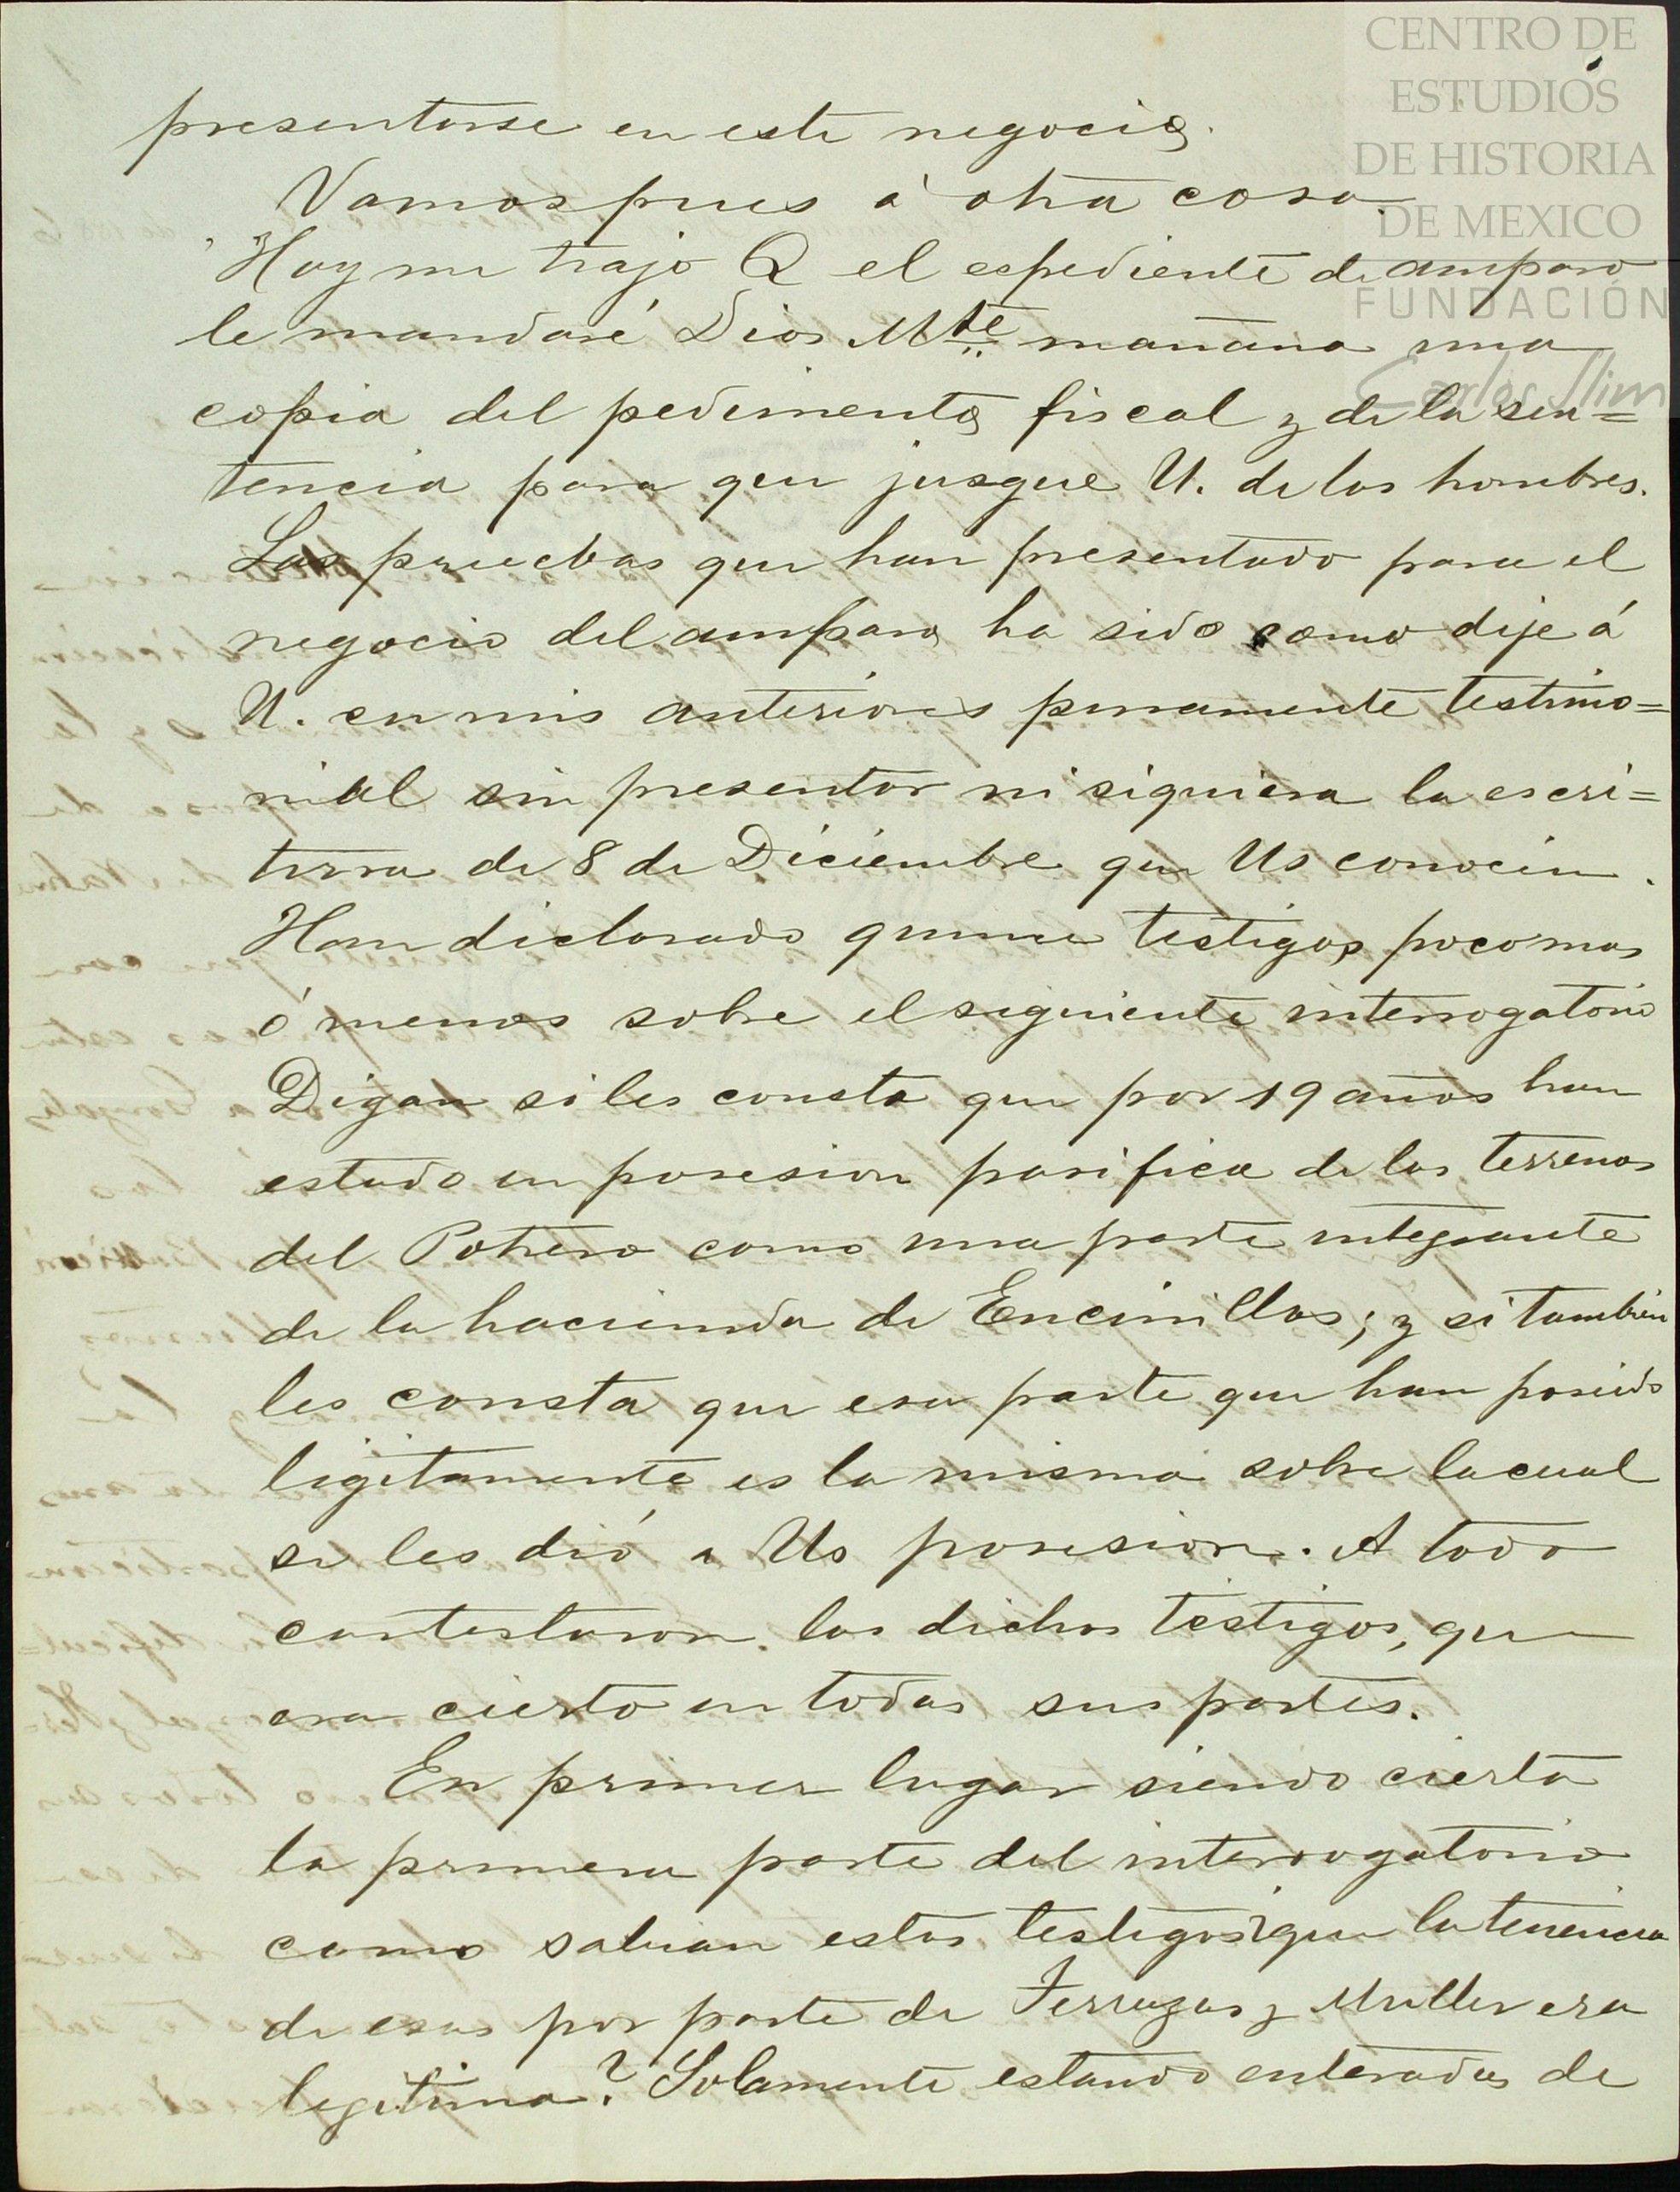 CENTRO DE
ESTUDIOS
DE HISTORIA
DE MEXICO
FUNDACIÓN
Carlos Slim
presentarse en este negocio.
Vamos pues á otra cosa.
Hoy me trajo Q el espediente de amparo
le mandaré Dios Mte mañana una
copia del pedimento fiscal y de la sen=
tencia para que jusgue U. de los hombres.
Las pruebas que han presentado para el
negocio del amparo ha sido como dije á
U. en mis anteriores puramente testimo=
nial sin presentar ni siquiera la escri=
tura de 8 de Diciembre que Us conocen.
Han declarado quince testigos poco mas
ó menos sobre el siguiente interrogatorio
Digan si les consta que por 19 años han
estado en posesion pasifica de los terrenos
del Potrero como una parte integrante
de la hacienda de Encinillas; y si tambien
les consta que esa parte que han poseido
ligitamente es la misma sobre la cual
se les dió a Us posesion. A todo
contestaron los dichos testigos, que
era cierto en todas sus partes.
En primer lugar siendo cierta
la primera parte del interrogatorio
como sabian estos testigos que la tenencia
de esas por parte de Terrazas y Muller era
legitima? Solamente estando enterados de